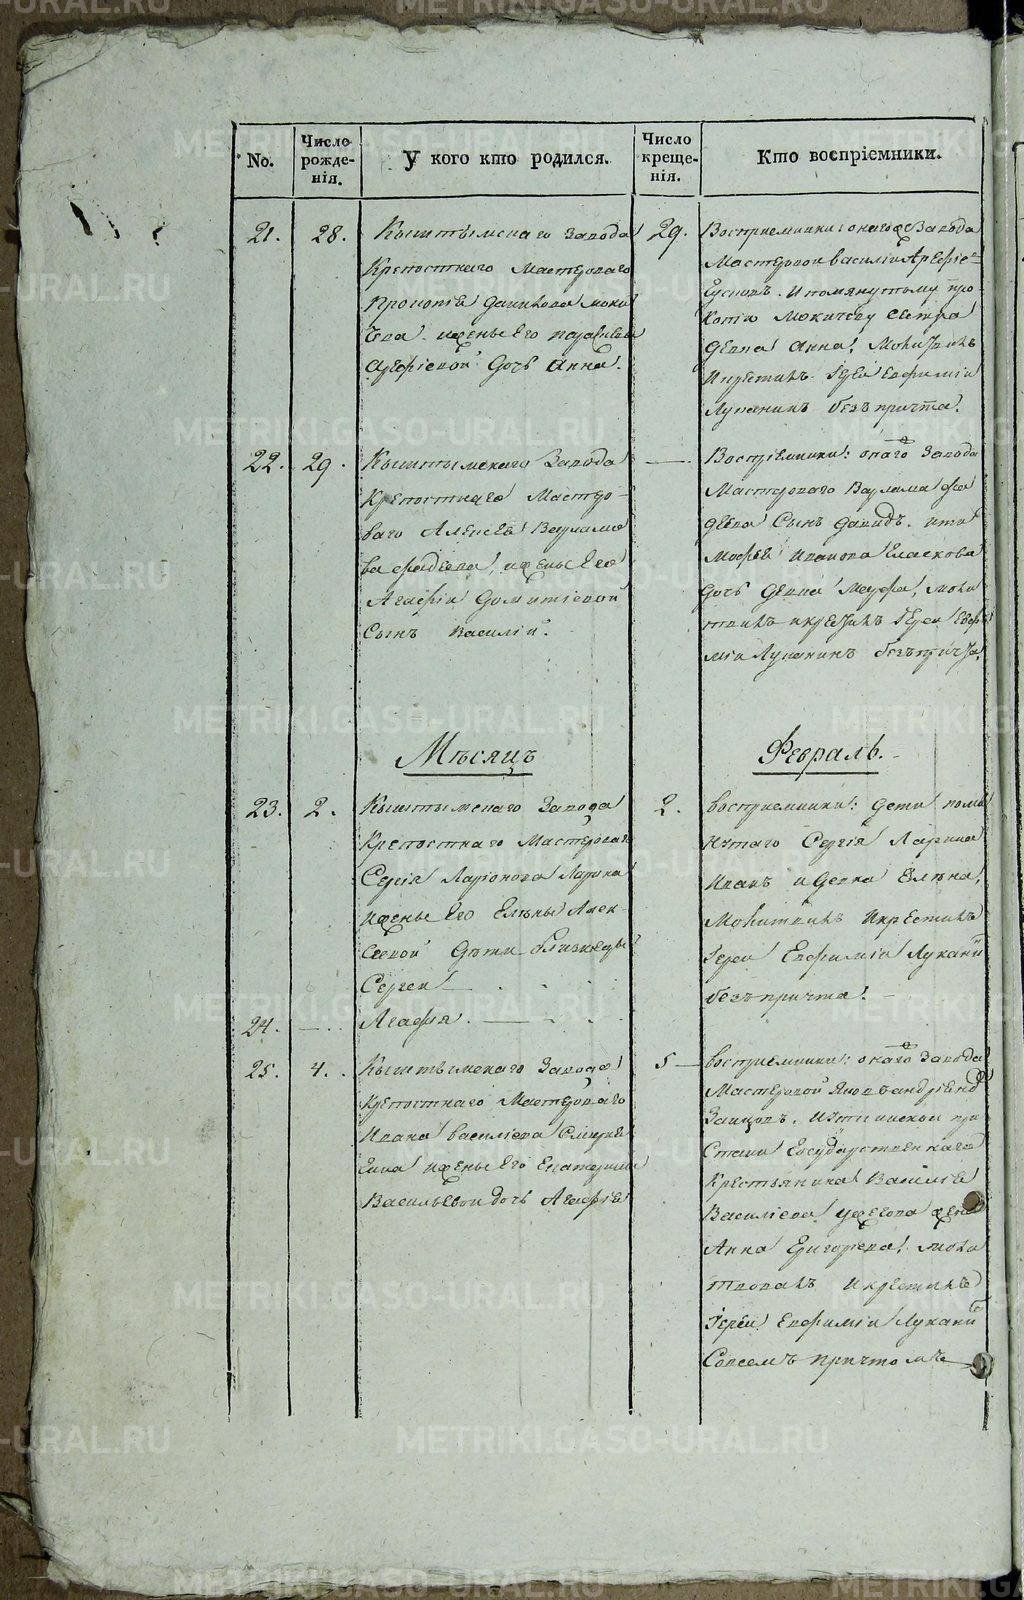 No.
Число рожде- нія.
У кого кто родился.
Число креще- нія.
Кто воспріемники.
21.
28.
Кыштымскаго завода
Крепостнаго Мастероваго
Прокопія Данилова Моки
чева. и жены Его
дочь Анна.
29.
Восприемники: онагоже Завода
Мастеровой василій Арефіе
и помянутому про
копію Мокичеву сестра
девка Анна, Молитвилъ
и крестилъ Іерей Евфимій
Луканинъ безъ причта.
22.
29.
Кыштымскаго Завода
Крепостнаго Мастеро-
ваго Алексея Варламо
ва Фадеева, и жены Его
Агафіи Домитіевой
Сынъ Василій.
—
Воспріемники: онаго же Завода
Мастероваго Варлама Фа
деева Сынъ Давидъ. и
Иванова Гласкова
дочь девка Марфа, моли
твилъ и крестилъ Іерей Евфи
мій Луканинъ безъ причта,
Мѣсяцъ Февраль.
23.
2.
Кыштымскаго Завода
Крепостнаго Мастероваго
Сергія Ларіонова Ларина
и жены Его Елены Алек-
сеевой Дети близнецы
Сергей
24.
— Агафія. —
2.
восприемники: дети помя
нутаго Сергія Ларина
Иванъ и девка Елена,
Молитвилъ и крестилъ
Іерей Евфимій Луканин
безъ причта. —
25.
4.
Кыштымскаго Завода
крепостнаго Мастероваго
Ивана василіева
и жены Его Екатерины
Васильевой дочь Агафіе
5
восприемники: онаго же завода
Мастеровой Яков Андріев
Заицовъ. при
стани Государственнаго
Крестьянина Василіе
Василіева жена
Анна Григорьева, моли
твовалъ и крестилъ
Іерей Евфимій Лукани
Совсемъ причтомъ
METRIKI.GASO-URAL.RU